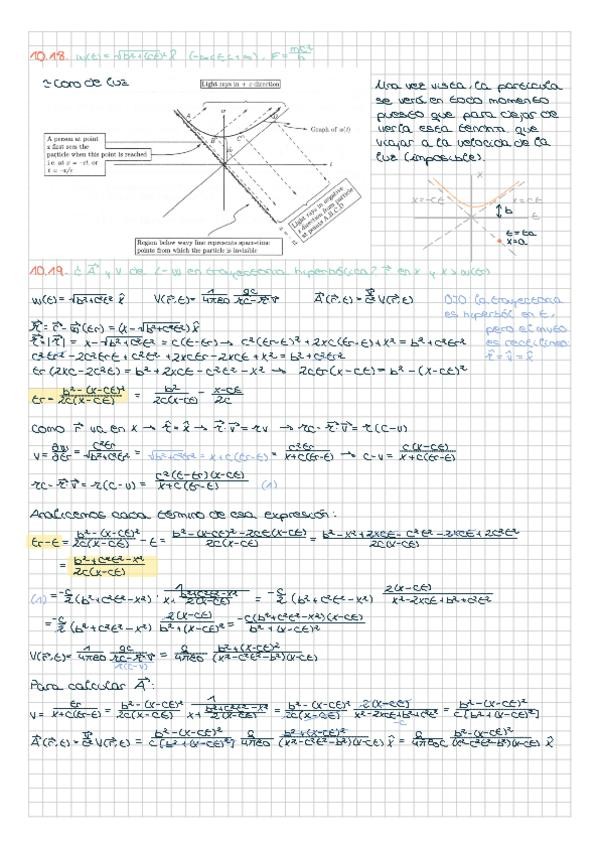 10.18. w(t) = √(b²+(ct)²) x̂ (-∞<t<+∞), F = mc²/b
≃ Cono de luz
Light rays in + x-direction
Graph of w(t)
A person at point
x first sees the
particle when this point is reached
i.e. at x = -ct or
t = -x/c
Light rays in negative
x direction from particle
at points A,B,C,D
Region below wavy line represents space-time
points from which the particle is invisible
Una vez vista, la partícula
se verá en todo momento
puesto que para dejar de
verla esta tendría que
viajar a la velocidad de la
luz (imposible).
x
x=-ct
x=ct
b
t
t=ta
x=a
10.19. ¿A⃗ y V de L-W en trayectoria hiperbólica? r⃗ en x y x>w(t)
w(t) = √(b²+c²t²) x̂ V(r⃗,t) = 1/4πε0 qc/(rc-r⃗·v⃗) A⃗(r⃗,t) = v⃗/c² V(r⃗,t)
OJO la trayectoria
es hiperból en t,
pero el mvto
es rectilíneo
r̂ = v̂ = x̂
r⃗ = r⃗ - w⃗(tr) = (x-√(b²+c²tr²)) x̂
r = |r⃗| = x-√(b²+c²tr²) = c(t-tr) → c²(tr-t)² + 2xc(tr-t) + x² = b²+c²tr²
c²tr² - 2c²trt + c²t² + 2xctr - 2xct + x² = b² + c²tr²
tr(2xc-2c²t) = b² + 2xct - c²t² - x² → 2ctr(x-ct) = b² - (x-ct)²
tr = (b²-(x-ct)²)/(2c(x-ct)) = b²/(2c(x-ct)) - (x-ct)/2c
Como r⃗ va en x → r̂ = x̂ → r⃗·v⃗ = rv → rc-r⃗·v⃗ = r(c-v)
v = ∂w/∂tr = c²tr/√(b²+c²tr²) = √(b²+c²tr²) = x+c(tr-t) = c²tr/(x+c(tr-t)) → c-v = c(x-ct)/(x+c(tr-t))
rc-r⃗·v⃗ = r(c-v) = c²(t-tr)(x-ct)/(x+c(tr-t)) (1)
Analicemos cada término de esa expresión:
tr-t = (b²-(x-ct)²)/(2c(x-ct)) - t = (b²-(x-ct)²-2ct(x-ct))/(2c(x-ct)) = (b²-x²+2xct-c²t²-2xct+2c²t²)/(2c(x-ct))
= (b²+c²t²-x²)/(2c(x-ct))
(1) = -c/2 (b²+c²t²-x²) · 1/(x+(b²+c²t²-x²)/(2(x-ct))) = -c/2 (b²+c²t²-x²) 2(x-ct)/(x²-2xct+b²+c²t²)
= -c/2 (b²+c²t²-x²) 2(x-ct)/(b²+(x-ct)²) = -c(b²+c²t²-x²)(x-ct)/(b²+(x-ct)²)
V(r⃗,t) = 1/4πε0 qc/(rc-r⃗·v⃗) = q/4πε0 (b²+(x-ct)²)/((x²-c²t²-b²)(x-ct))
r(c-v)
Para calcular A⃗:
v = tr/(x+c(tr-t)) = (b²-(x-ct)²)/(2c(x-ct)) 1/(x+(b²+c²t²-x²)/(2(x-ct))) = (b²-(x-ct)²)/(2c(x-ct)) 2(x-ct)/(x²-2xct+b²+c²t²) = (b²-(x-ct)²)/(c[b²+(x-ct)²])
A⃗(r⃗,t) = v⃗/c² V(r⃗,t) = (b²-(x-ct)²)/(c[b²+(x-ct)²]) q/4πε0 (b²+(x-ct)²)/((x²-c²t²-b²)(x-ct)) x̂ = q/4πε0c (b²-(x-ct)²)/((x²-c²t²-b²)(x-ct)) x̂